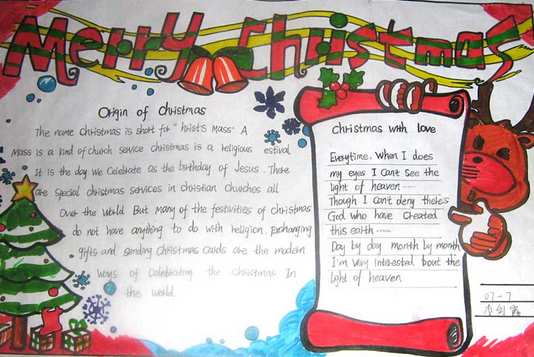 Merry Christmas
Origin of christmas
The name christmas is short for "hrist's Mass" A
Mass is a kind of chuch sevice christmas is a religious estival
It is the day we celebrate as the birthday of Jesus. There
are special christmas services in christian churches all
Over the World But many of the festivities of christmas
do not have anything to do with religion. Exchanging
gifts and sending Christmas cards are the modern
ways of celebrating the Christmas In
the world.
Christmas with love
Everytime. When I does
my eyes I can't see the
light of heaven
Though I can't deny there's
God who have created
this earth
Day by day month by month
I'm very interested bout the
light of heaven
07-7